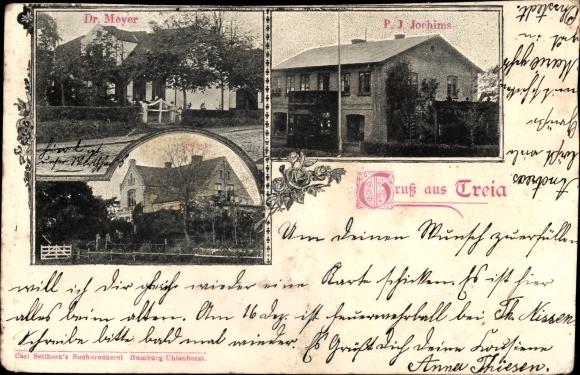 Dr. Meyer
P. J. Jochims
Gruß aus Treia
Um deinen Wunsch zu erfüllen
will ich dir gleich wieder eine Karte schicken. Es ist hier
alles beim alten. Am 16 Dez. ist feuerwehrball bei Th. Nissen
Schreibe bitte bald mal wieder. Es Grüßt Dich deine Cousiene
Anna Thiesen.
Carl Seilhorn's Buchdruckerei Hamburg-Uhlenhorst.
Andreas